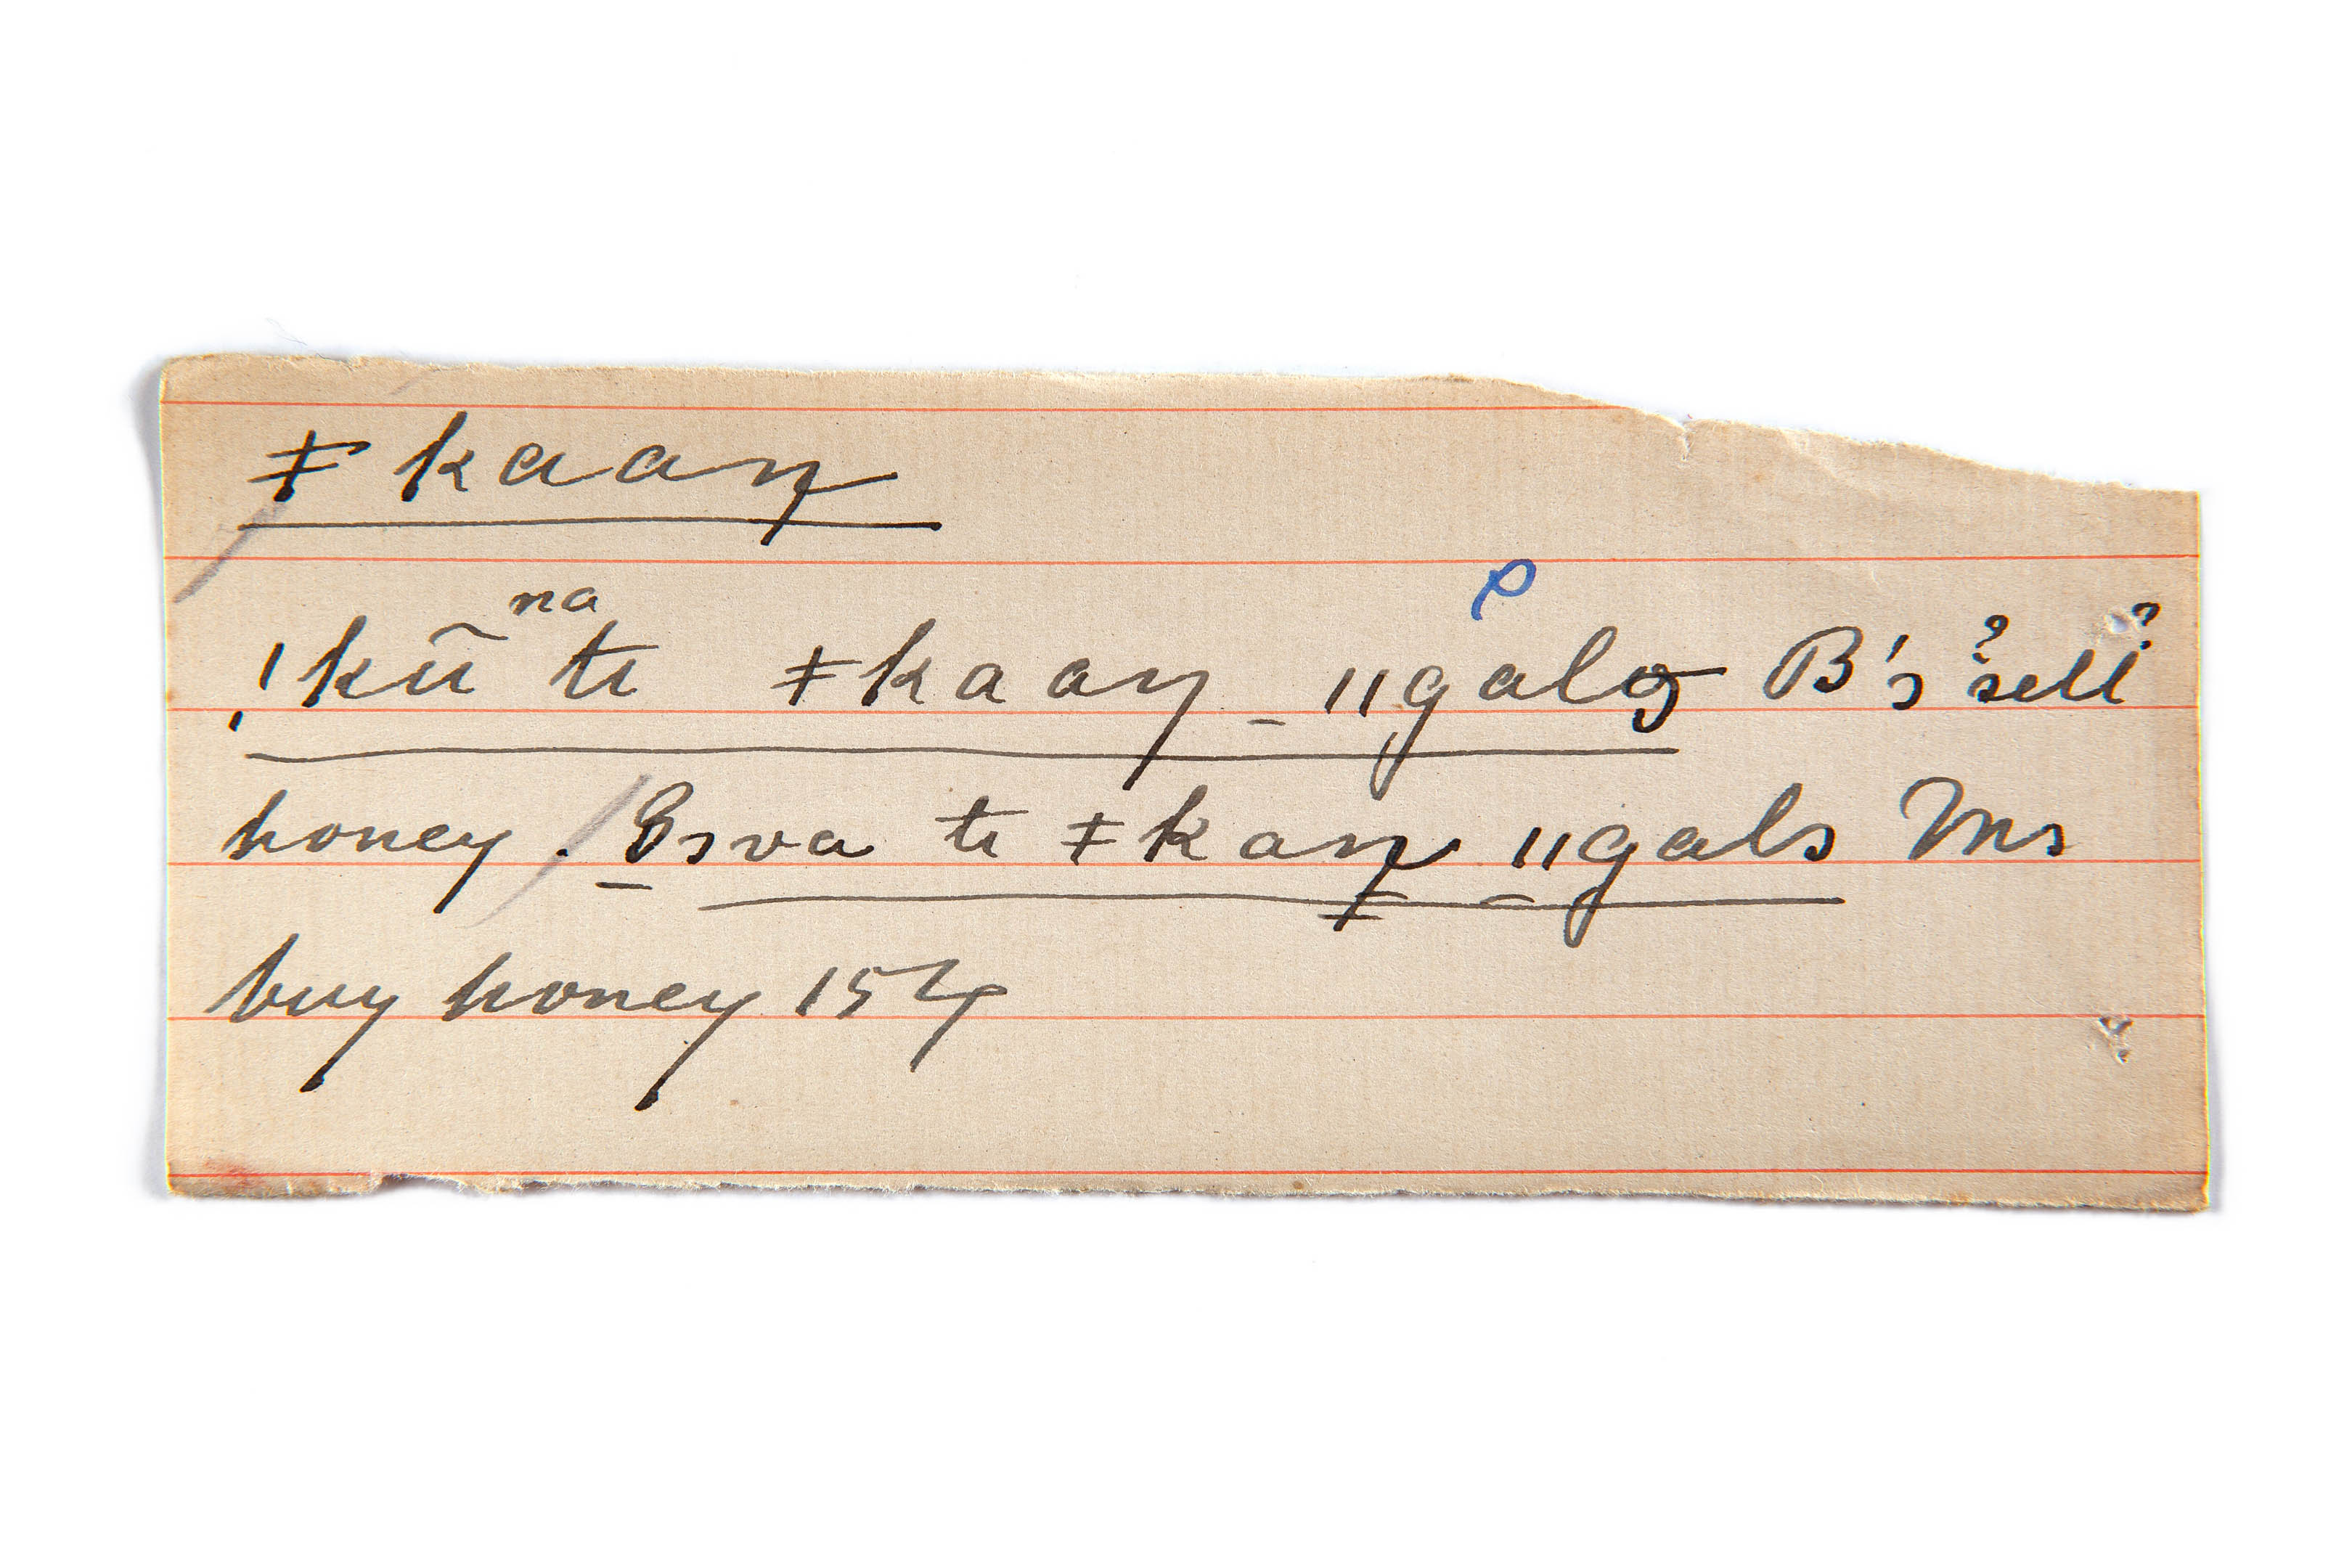 ǂ kaaŋ
!kũ na ti ǂkaaŋ ǁgalo B's ? sell ?
honey. ti ǂkaŋ ǁgals Ms
buy honey 154